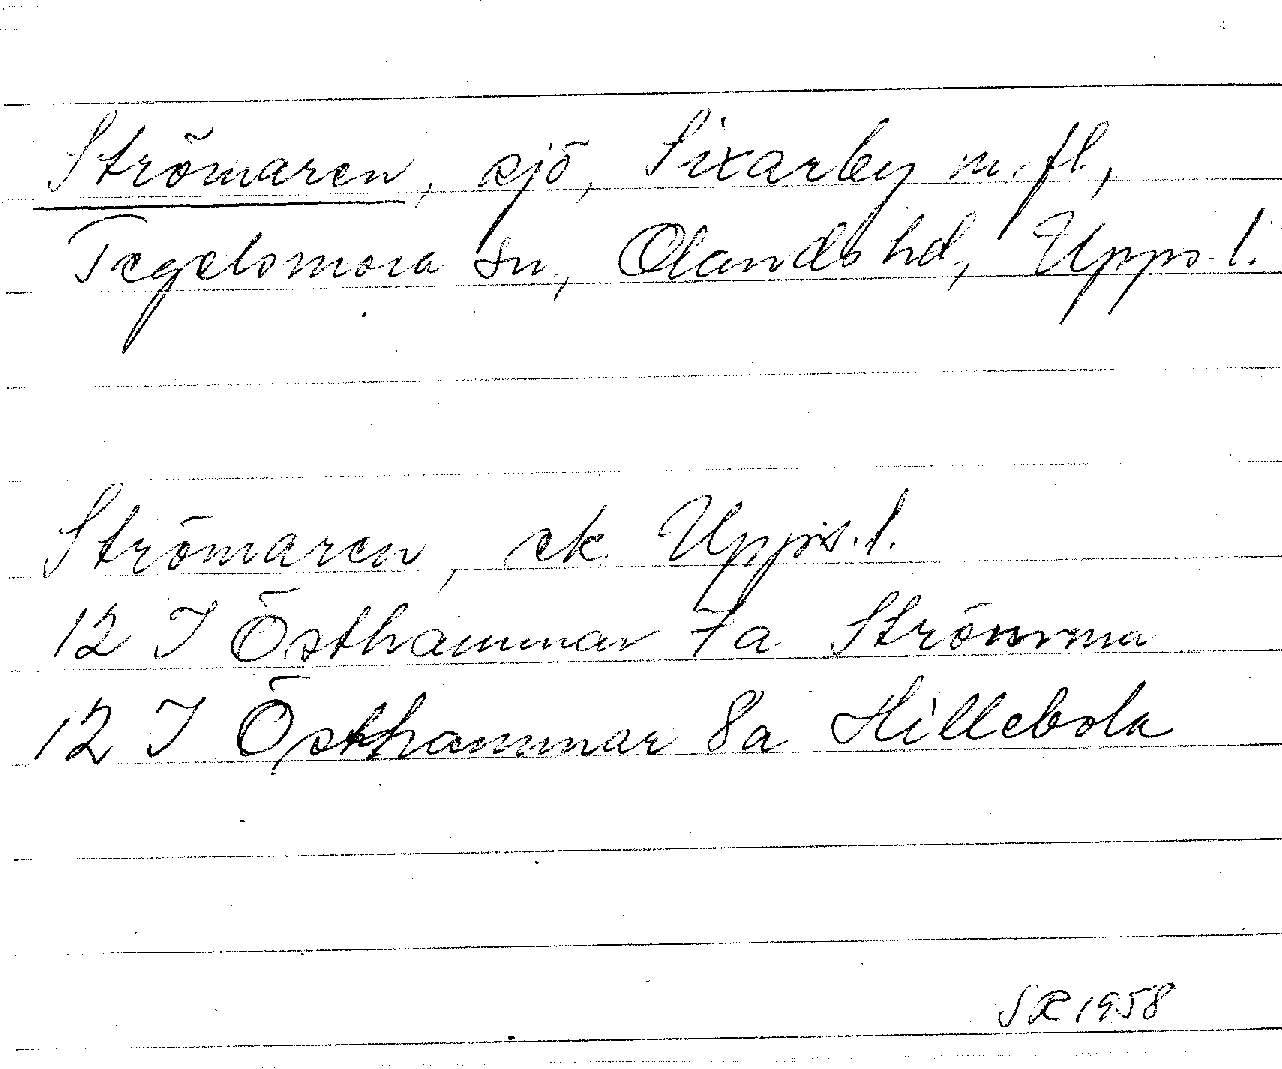 Strömaren, sjö, Sixarby m.fl.,
Tegelsmora sn, Olands hd, Upps. l.
Strömaren, ek Upps. l.
12 I Östhammar 7a Strömma
12 I Östhammar 8a Hillebola
SR 1958